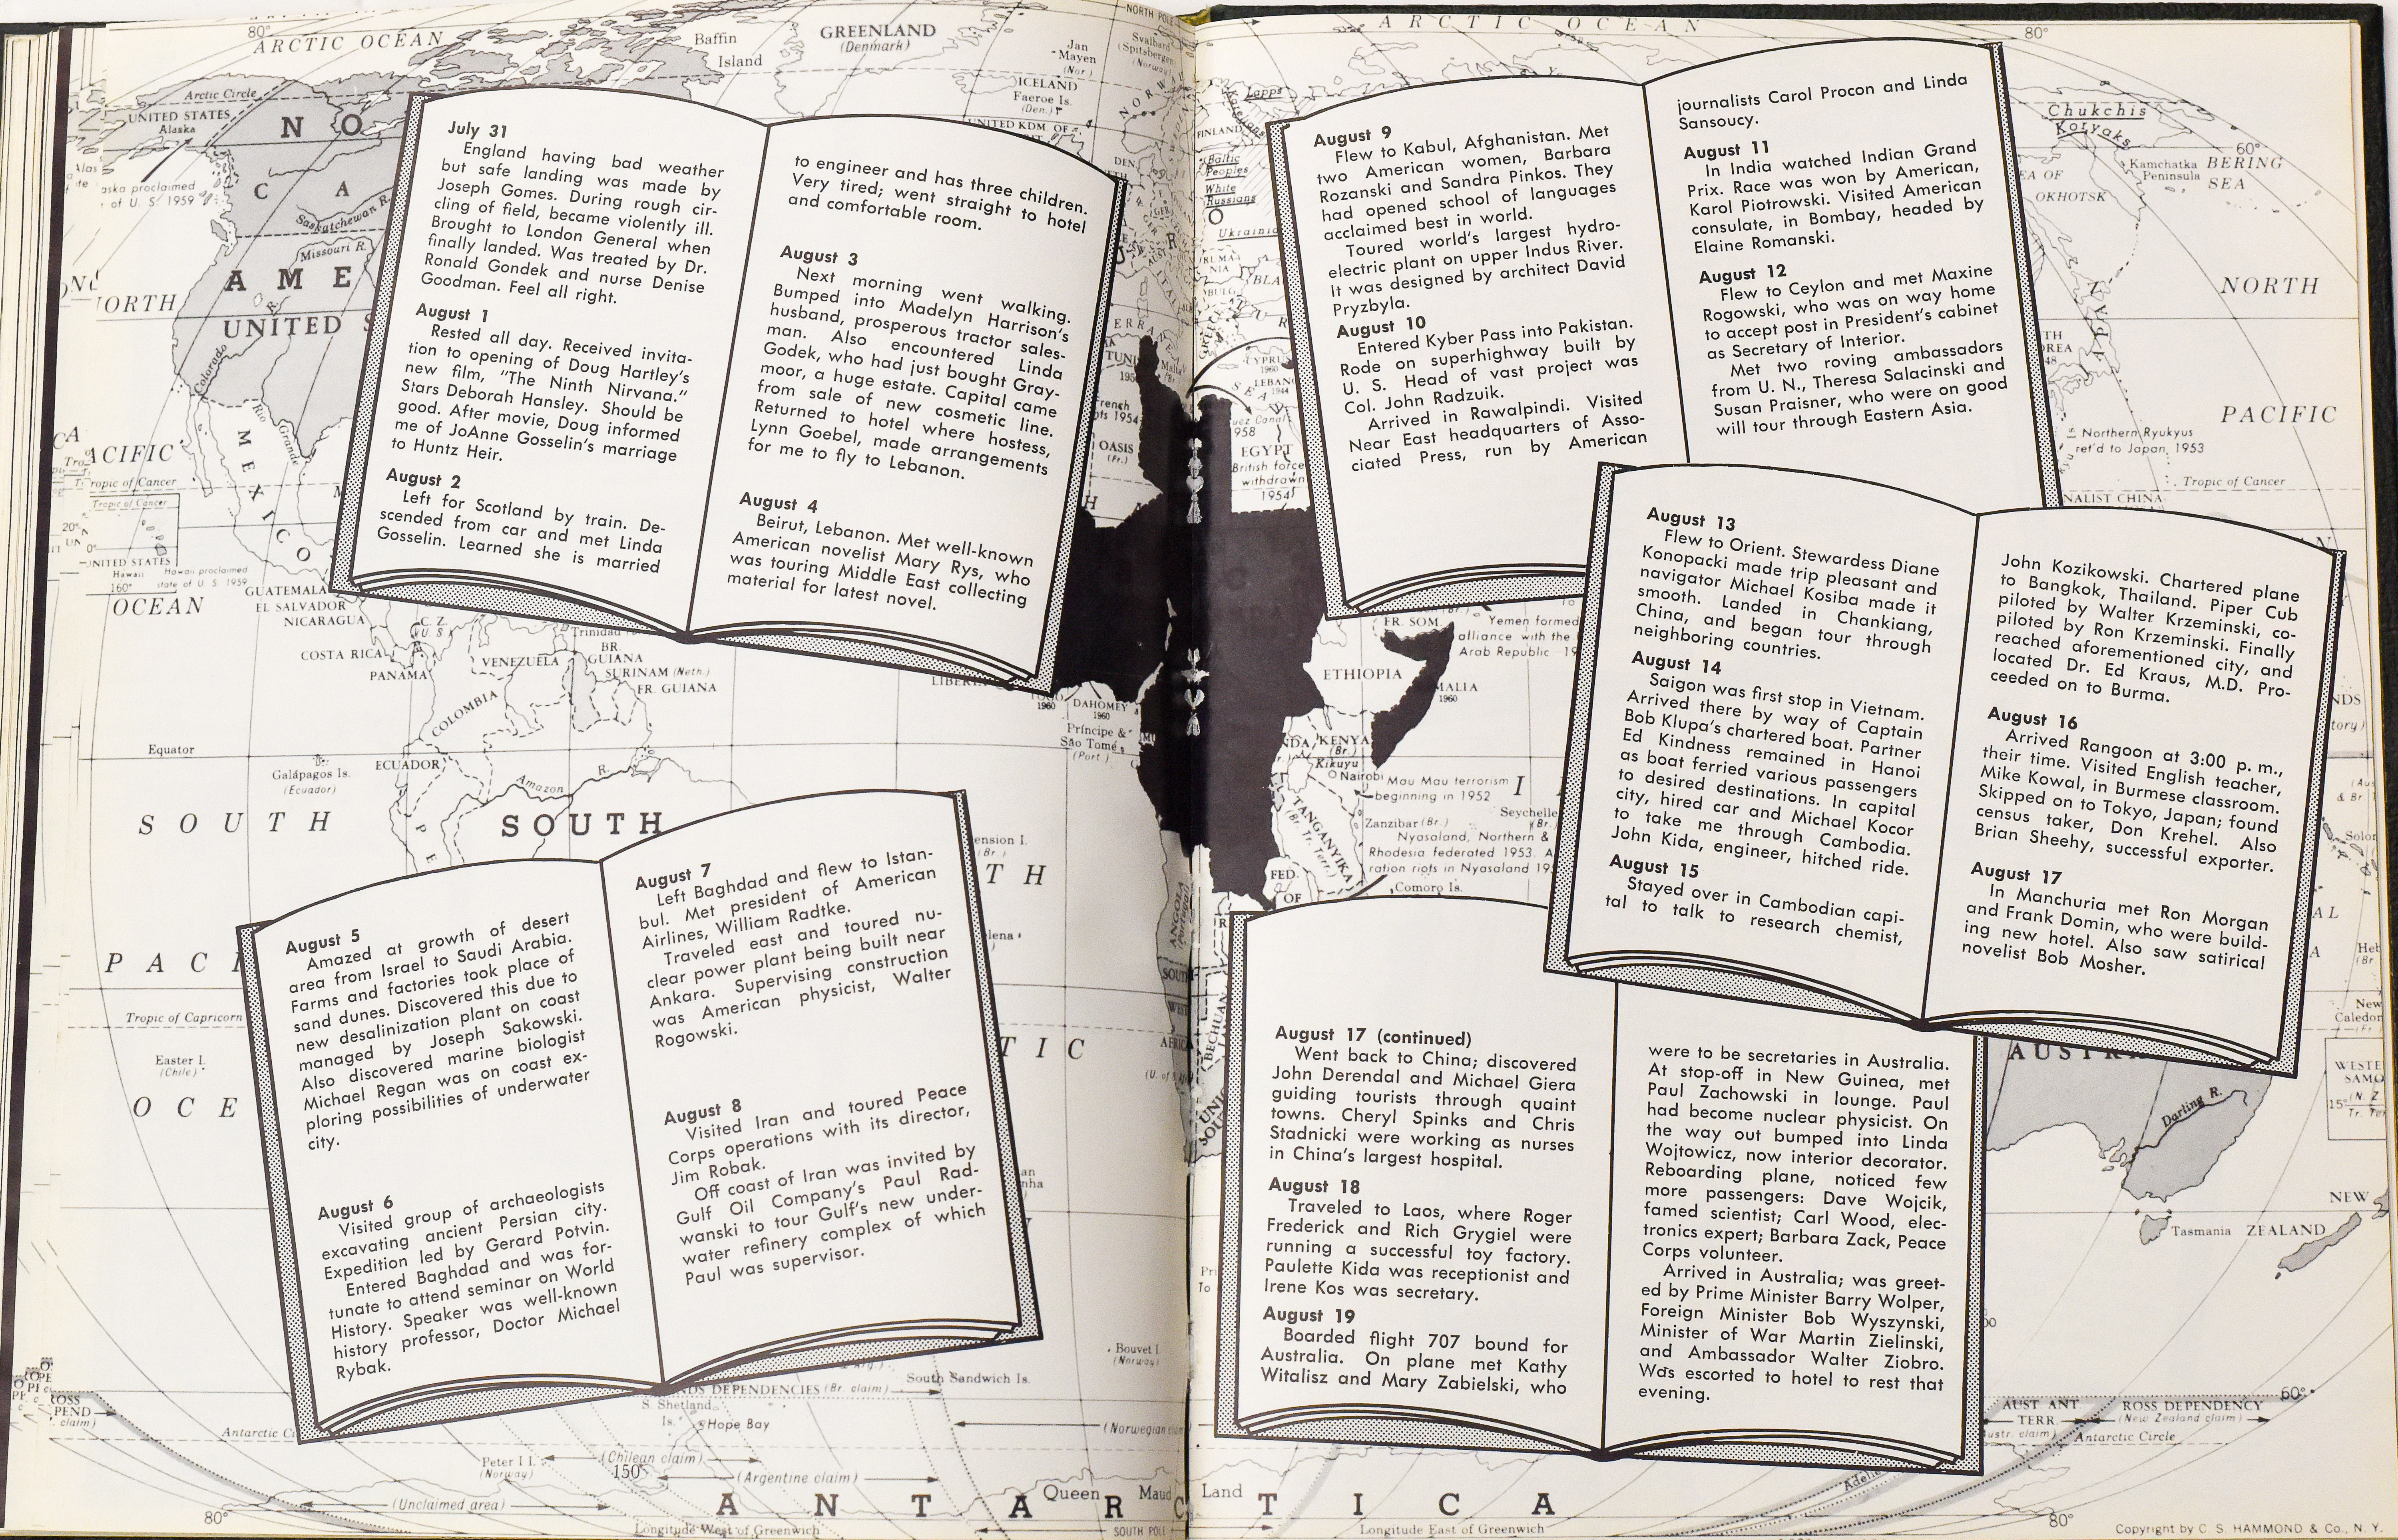 July 31
England having bad weather
but safe landing was made by
Joseph Gomes. During rough cir-
cling of field, became violently ill.
Brought to London General when
finally landed. Was treated by Dr.
Ronald Gondek and nurse Denise
Goodman. Feel all right.
August 1
Rested all day. Received invita-
tion to opening of Doug Hartley's
new film, "The Ninth Nirvana."
Stars Deborah Hansley. Should be
good. After movie, Doug informed
me of JoAnne Gosselin's marriage
to Huntz Heir.
August 2
Left for Scotland by train. De-
scended from car and met Linda
Gosselin. Learned she is married
to engineer and has three children.
Very tired; went straight to hotel
and comfortable room.
August 3
Next morning went walking.
Bumped into Madelyn Harrison's
husband, prosperous tractor sales-
man. Also encountered Linda
Godek, who had just bought Gray-
moor, a huge estate. Capital came
from sale of new cosmetic line.
Returned to hotel where hostess,
Lynn Goebel, made arrangements
for me to fly to Lebanon.
August 4
Beirut, Lebanon. Met well-known
American novelist Mary Rys, who
was touring Middle East collecting
material for latest novel.
August 5
Amazed at growth of desert
area from Israel to Saudi Arabia.
Farms and factories took place of
sand dunes. Discovered this due to
new desalinization plant on coast
managed by Joseph Sakowski.
Also discovered marine biologist
Michael Regan was on coast ex-
ploring possibilities of underwater
city.
August 6
Visited group of archaeologists
excavating ancient Persian city.
Expedition led by Gerard Potvin.
Entered Baghdad and was for-
tunate to attend seminar on World
History. Speaker was well-known
history professor, Doctor Michael
Rybak.
August 7
Left Baghdad and flew to Istan-
bul. Met president of American
Airlines, William Radtke.
Traveled east and toured nu-
clear power plant being built near
Ankara. Supervising construction
was American physicist, Walter
Rogowski.
August 8
Visited Iran and toured Peace
Corps operations with its director,
Jim Robak.
Off coast of Iran was invited by
Gulf Oil Company's Paul Rad-
wanski to tour Gulf's new under-
water refinery complex of which
Paul was supervisor.
August 9
Flew to Kabul, Afghanistan. Met
two American women, Barbara
Rozanski and Sandra Pinkos. They
had opened school of languages
acclaimed best in world.
Toured world's largest hydro-
electric plant on upper Indus River.
It was designed by architect David
Pryzbyla.
August 10
Entered Kyber Pass into Pakistan.
Rode on superhighway built by
U. S. Head of vast project was
Col. John Radzuik.
Arrived in Rawalpindi. Visited
Near East headquarters of Asso-
ciated Press, run by American
journalists Carol Procon and Linda
Sansoucy.
August 11
In India watched Indian Grand
Prix. Race was won by American,
Karol Piotrowski. Visited American
consulate, in Bombay, headed by
Elaine Romanski.
August 12
Flew to Ceylon and met Maxine
Rogowski, who was on way home
to accept post in President's cabinet
as Secretary of Interior.
Met two roving ambassadors
from U. N., Theresa Salacinski and
Susan Praisner, who were on good
will tour through Eastern Asia.
August 13
Flew to Orient. Stewardess Diane
Konopacki made trip pleasant and
navigator Michael Kosiba made it
smooth. Landed in Chankiang,
China, and began tour through
neighboring countries.
August 14
Saigon was first stop in Vietnam.
Arrived there by way of Captain
Bob Klupa's chartered boat. Partner
Ed Kindness remained in Hanoi
as boat ferried various passengers
to desired destinations. In capital
city, hired car and Michael Kocor
to take me through Cambodia.
John Kida, engineer, hitched ride.
August 15
Stayed over in Cambodian capi-
tal to talk to research chemist,
John Kozikowski. Chartered plane
to Bangkok, Thailand. Piper Cub
piloted by Walter Krzeminski, co-
piloted by Ron Krzeminski. Finally
reached aforementioned city, and
located Dr. Ed Kraus, M.D. Pro-
ceeded on to Burma.
August 16
Arrived Rangoon at 3:00 p. m.,
their time. Visited English teacher,
Mike Kowal, in Burmese classroom.
Skipped on to Tokyo, Japan; found
census taker, Don Krehel. Also
Brian Sheehy, successful exporter.
August 17
In Manchuria met Ron Morgan
and Frank Domin, who were build-
ing new hotel. Also saw satirical
novelist Bob Mosher.
August 17 (continued)
Went back to China; discovered
John Derendal and Michael Giera
guiding tourists through quaint
towns. Cheryl Spinks and Chris
Stadnicki were working as nurses
in China's largest hospital.
August 18
Traveled to Laos, where Roger
Frederick and Rich Grygiel were
running a successful toy factory.
Paulette Kida was receptionist and
Irene Kos was secretary.
August 19
Boarded flight 707 bound for
Australia. On plane met Kathy
Witalisz and Mary Zabielski, who
were to be secretaries in Australia.
At stop-off in New Guinea, met
Paul Zachowski in lounge. Paul
had become nuclear physicist. On
the way out bumped into Linda
Wojtowicz, now interior decorator.
Reboarding plane, noticed few
more passengers: Dave Wojcik,
famed scientist; Carl Wood, elec-
tronics expert; Barbara Zack, Peace
Corps volunteer.
Arrived in Australia; was greet-
ed by Prime Minister Barry Wolper,
Foreign Minister Bob Wyszynski,
Minister of War Martin Zielinski,
and Ambassador Walter Ziobro.
Was escorted to hotel to rest that
evening.
80°
ARCTIC OCEAN
Baffin
Island
GREENLAND
(Denmark)
Jan
Mayen
(Nor.)
ICELAND
Faeroe Is.
(Den.)
Arctic Circle
UNITED STATES
Alaska
Saskatchewan R.
Missouri R.
UNITED
Colorado
Rio
Grande
MEXICO
Tropic of Cancer
OCEAN
GUATEMALA
EL SALVADOR
NICARAGUA
COSTA RICA
PANAMA
VENEZUELA
BR.
GUIANA
SURINAM (Neth.)
FR. GUIANA
COLOMBIA
Equator
Galápagos Is.
(Ecuador)
ECUADOR
Amazon
R.
SOUTH
SOUTH
Tropic of Capricorn
Easter I.
(Chile)
DAHOMEY
1960
Príncipe &
São Tomé
(Port.)
South Sandwich Is.
DEPENDENCIES (Br. claim)
S. Shetland
Is.
Hope Bay
Peter I I.
(Norway)
(Chilean claim)
150
(Argentine claim)
(Unclaimed area)
80°
Bouvet I.
(Norway)
ANTARCTICA
Queen Maud Land
Longitude West of Greenwich
SOUTH POLE
Longitude East of Greenwich
ARCTIC OCEAN
80°
Lapps
FINLAND
Baltic
Peoples
White
Russians
Chukchis
Koryaks
60°
Kamchatka
Peninsula
BERING
SEA
OKHOTSK
NORTH
PACIFIC
Northern Ryukyus
ret'd to Japan, 1953
Tropic of Cancer
EGYPT
British force
withdrawn
1954
FR. SOM.
Yemen formed
alliance with the
Arab Republic
ETHIOPIA
KENYA
(Br.)
Kikuyu
Nairobi
Mau Mau terrorism
beginning in 1952
TANGANYIKA
(Br. Tr. Terr.)
Zanzibar (Br.)
Nyasaland, Northern &
Rhodesia federated 1953.
Comoro Is.
FED.
OF
Darling R.
Tasmania
NEW
ZEALAND
60°
AUST ANT
TERR.
ROSS DEPENDENCY
(New Zealand claim)
Antarctic Circle
80°
Copyright by C. S. HAMMOND & Co., N. Y.